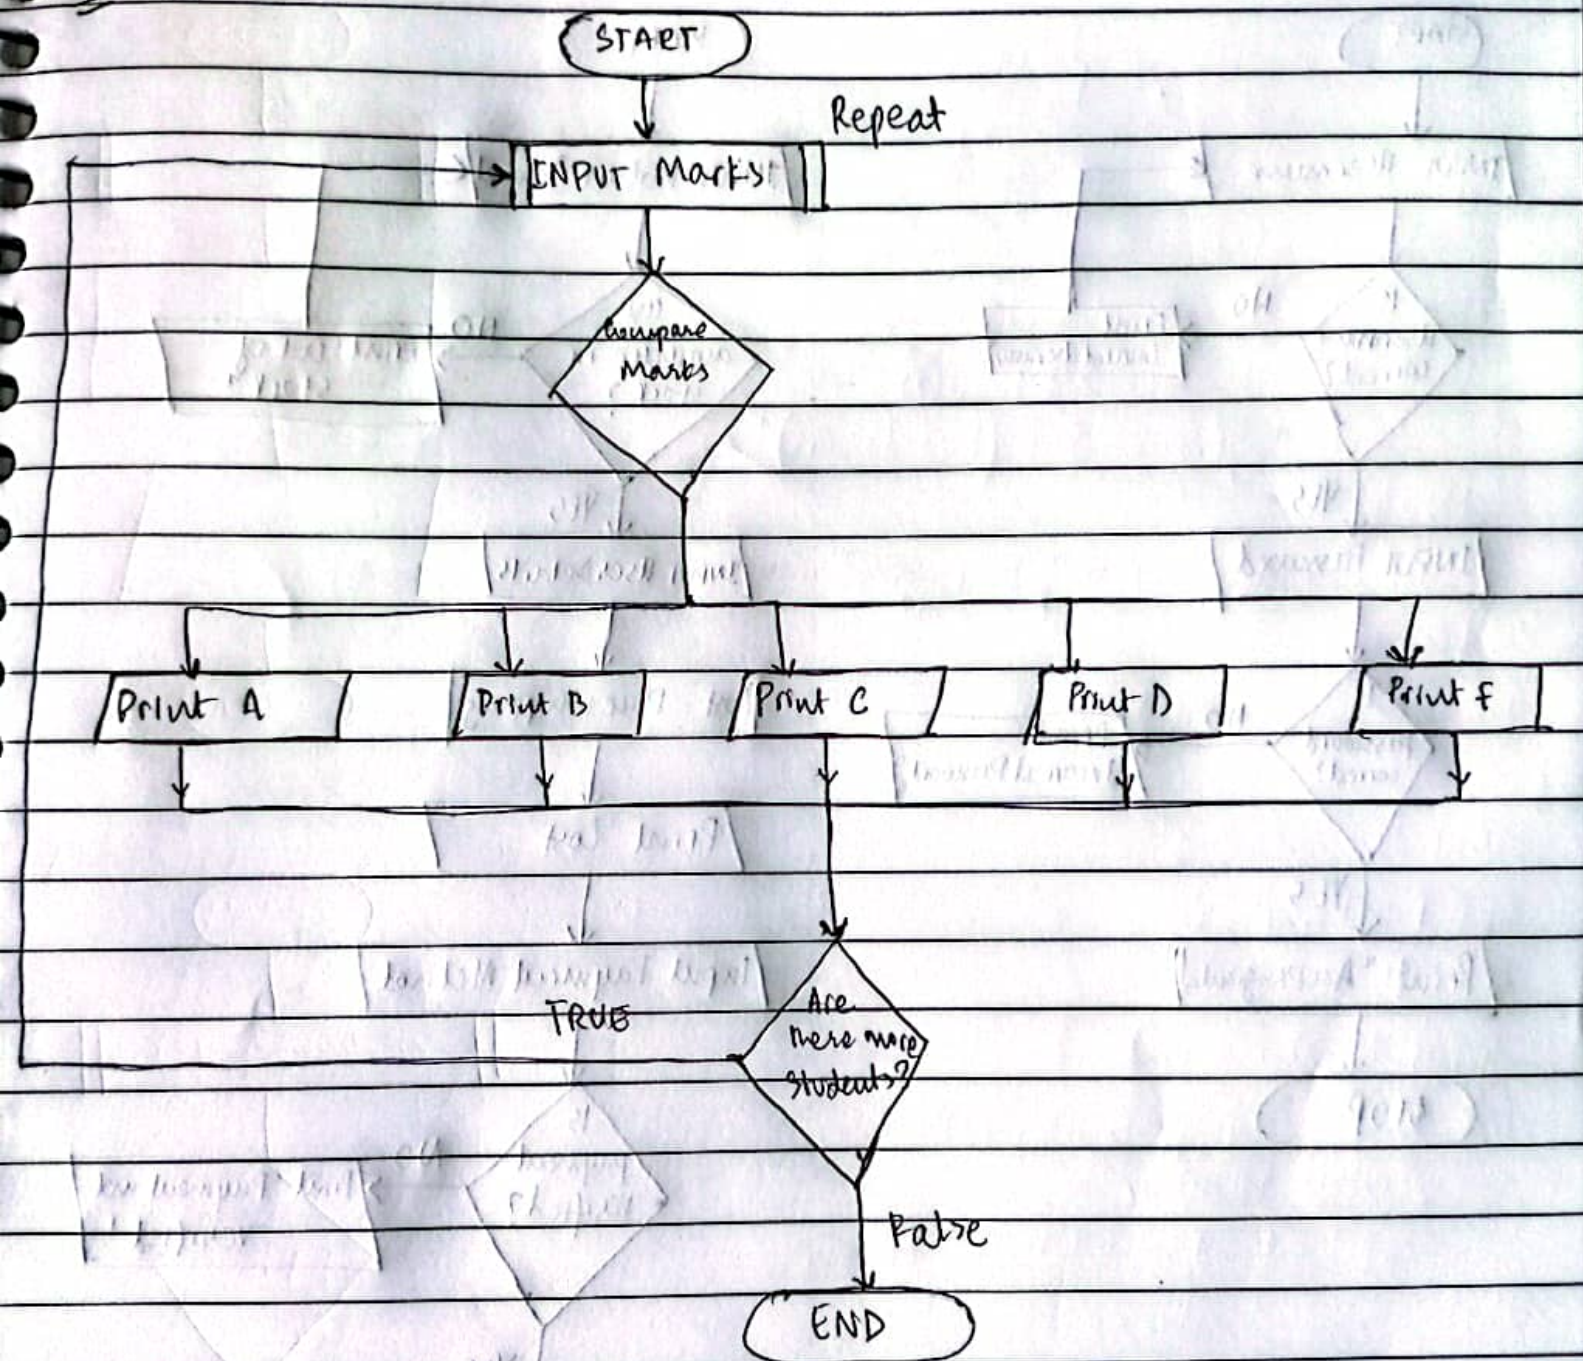 START
Repeat
INPUT Marks
Compare
Marks
Print A
Print B
Print C
Print D
Print F
Are
there more
students?
TRUE
False
END